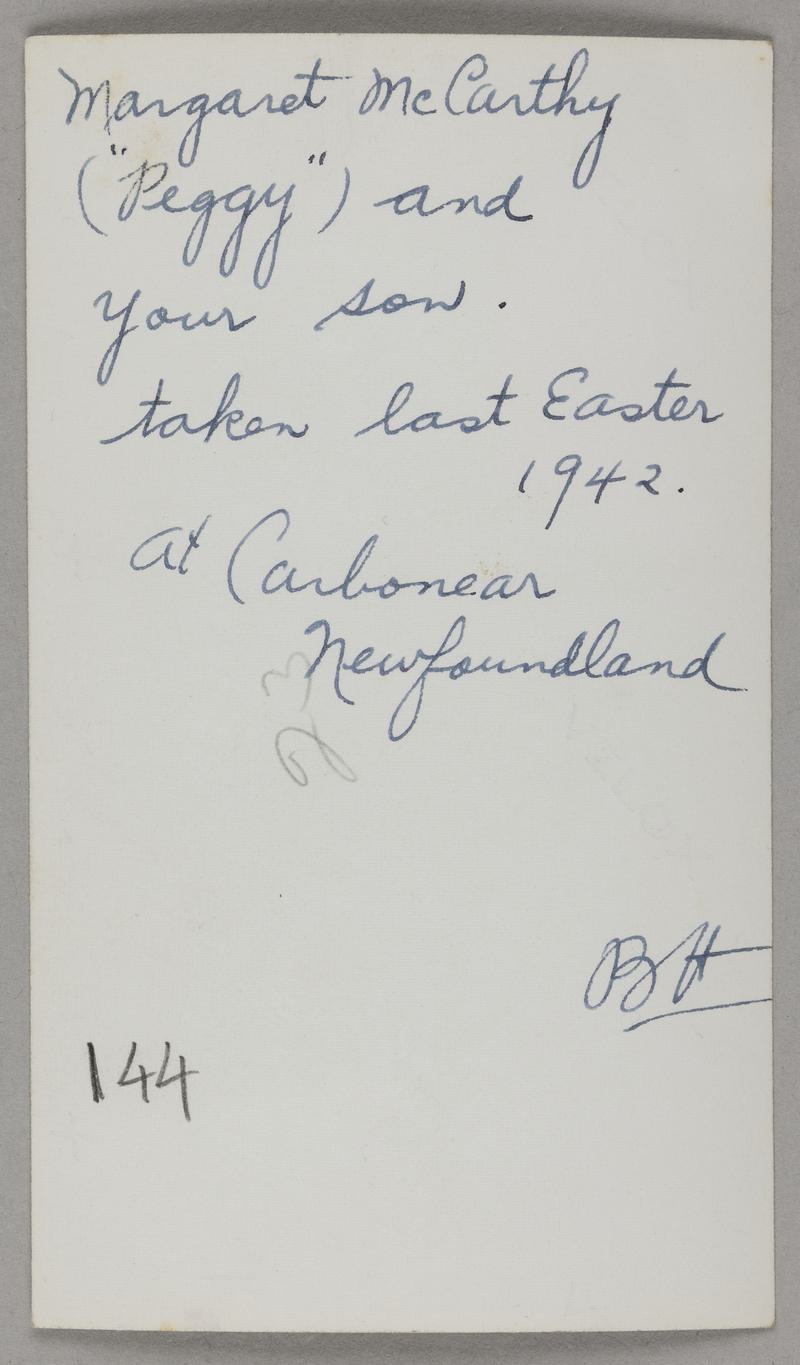 Margaret McCarthy
("Peggy") and
your son.
taken last Easter
1942.
at Carbonear
Newfoundland
23
BH
144